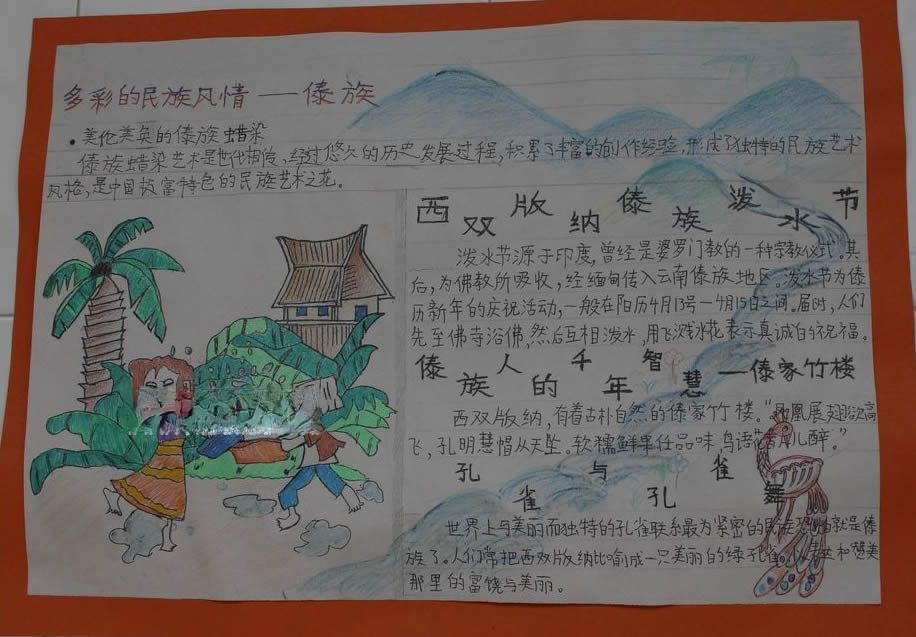 多彩的民族风情——傣族
·美伦美奂的傣族蜡染
傣族蜡染艺术是世代相传、经过悠久的历史发展过程,积累了丰富的创作经验,形成了独特的民族艺术
风格,是中国极富特色的民族艺术之花。
西双版纳傣族泼水节
泼水节源于印度,曾经是婆罗门教的一种宗教仪式。其
后,为佛教所吸收,经缅甸传入云南傣族地区。泼水节为傣
历新年的庆祝活动,一般在阳历4月13号—4月15日之间。届时,人们
先至佛寺浴佛,然后互相泼水,用飞溅水花表示真诚的祝福。
傣族人的千年智慧——傣家竹楼
西双版纳,有着古朴自然的傣家竹楼。“凤凰展翅欲高
飞,孔明慧帽从天坠。软糯鲜果任品味,鸟语花香八儿醉。”
孔雀与孔雀舞
世界上与美丽而独特的孔雀联系最为紧密的民族 就是傣
族了。人们常把西双版纳比喻成一只美丽的绿孔雀。 和赞美
那里的富饶与美丽。